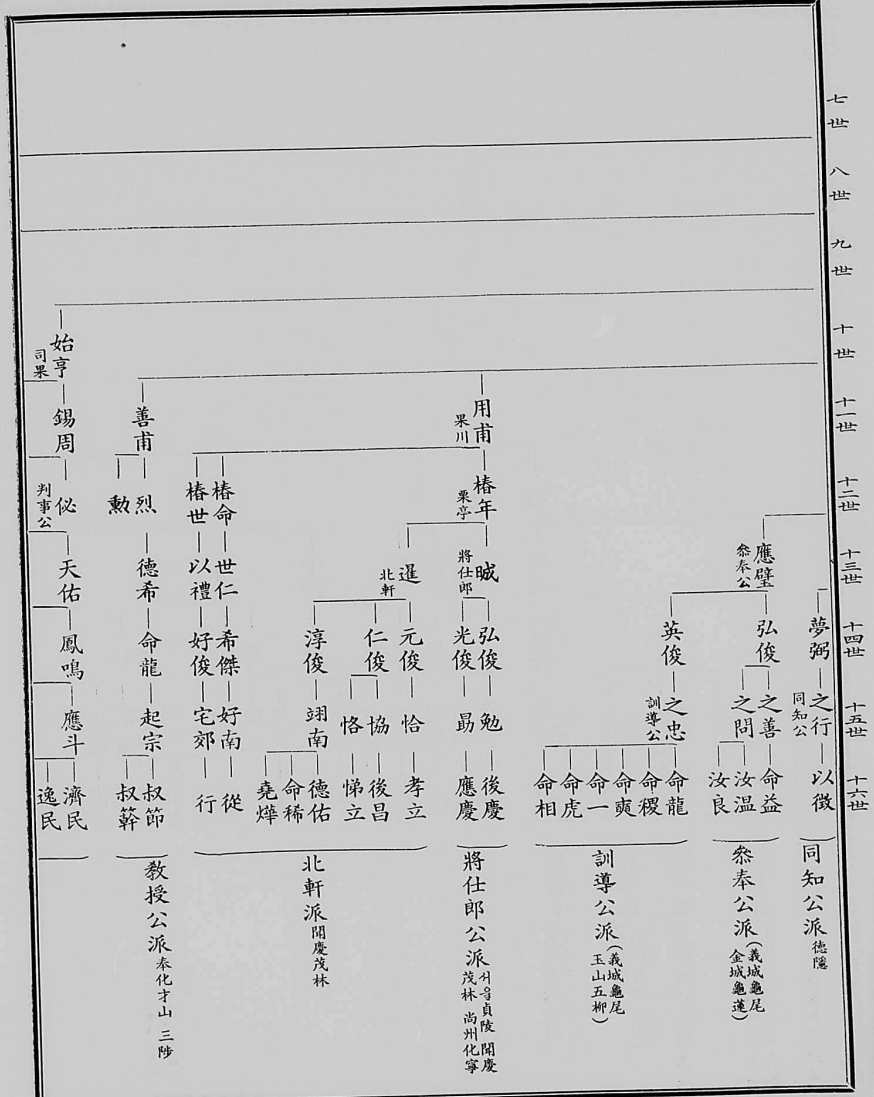 七世
八世
九世
十世
十一世
十二世
十三世
十四世
十五世
十六世
夢弼
之行
同知公
以徵
同知公派
德隱
應璧
叅奉公
弘俊
之善
命益
之問
汝温
汝良
叅奉公派
(義城龜尾
金城龜蓮)
英俊
之忠
訓導公
命龍
命稷
命奭
命一
命虎
命相
訓導公派
(義城龜尾
玉山五柳)
用甫
果川
椿年
栗亭
晠
將仕郎
弘俊
勉
後慶
光俊
勗
應慶
將仕郎公派
서울貞陵 聞慶
茂林 尚州化寧
暹
北軒
元俊
恰
孝立
仁俊
協
後昌
恪
悌立
淳俊
翊南
德佑
命稀
堯燁
椿命
世仁
希傑
好南
從
椿世
以禮
好俊
宅郊
行
北軒派
聞慶茂林
善甫
烈
德希
命龍
起宗
叔節
叔簳
勲
教授公派
奉化才山 三陟
始亨
司果
錫周
佖
判事公
天佑
鳳鳴
應斗
濟民
逸民